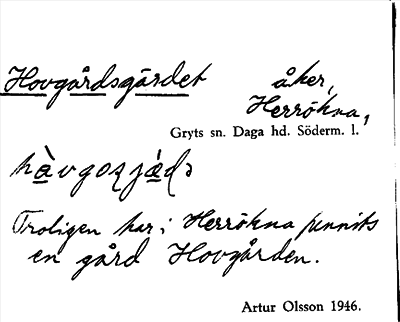 Hovgårdsgärdet åker,
Herrökna,
Gryts sn. Daga hd. Söderm. l.
hàvgoʂjǽdə
Troligen har i Herrökna funnits
en gård Hovgården.
Artur Olsson 1946.